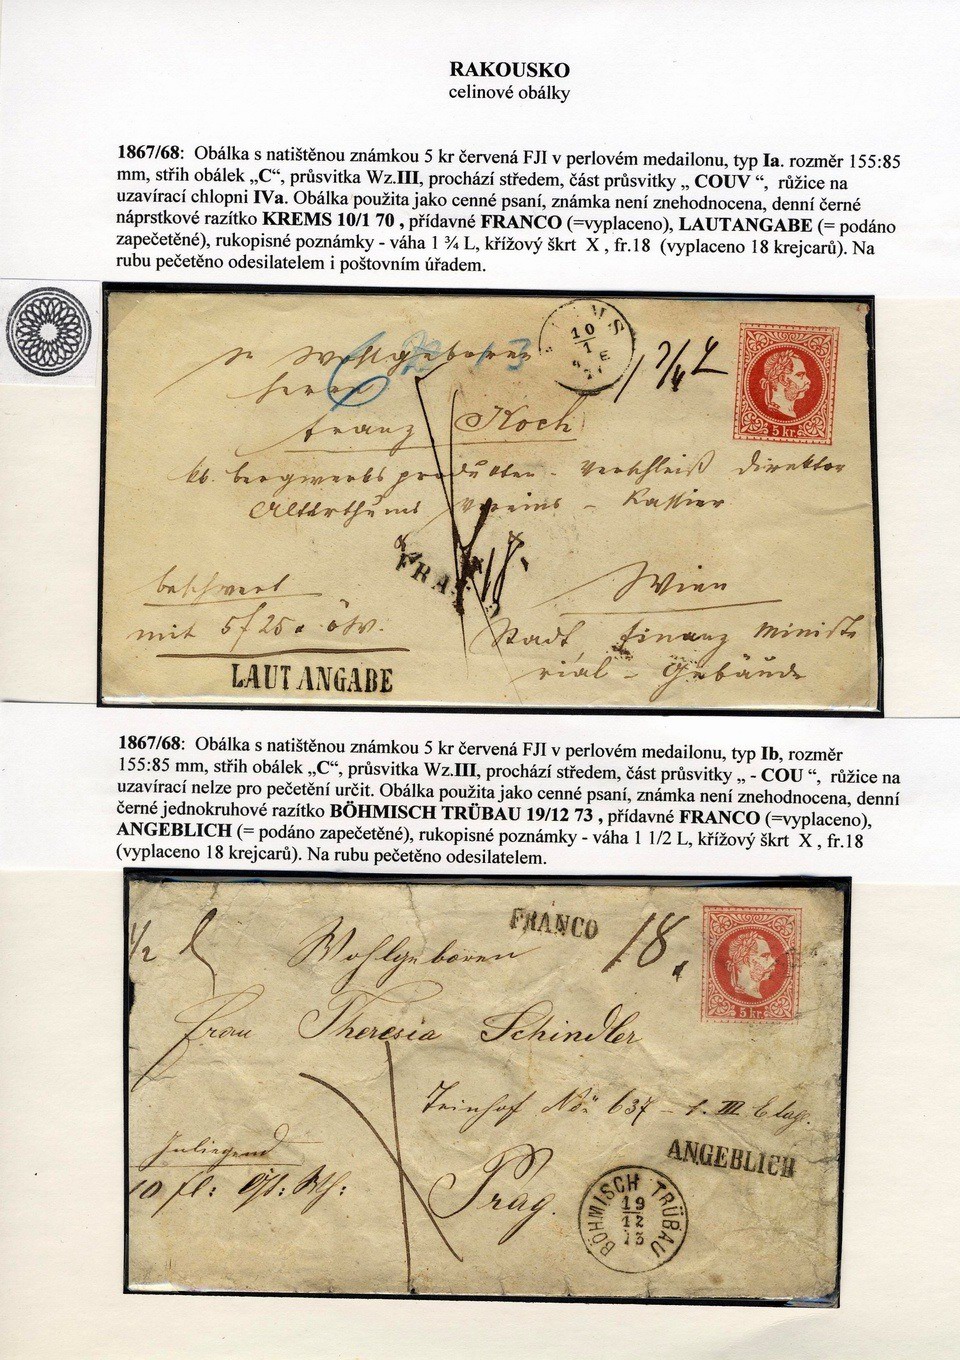 RAKOUSKO
celinové obálky
1867/68: Obálka s natištěnou známkou 5 kr červená FJI v perlovém medailonu, typ Ia. rozměr 155:85
mm, střih obálek „C“, průsvitka Wz.III, prochází středem, část průsvitky „ COUV “, růžice na
uzavírací chlopni IVa. Obálka použita jako cenné psaní, známka není znehodnocena, denní černé
náprstkové razítko KREMS 10/1 70 , přídavné FRANCO (=vyplaceno), LAUTANGABE (= podáno
zapečetěné), rukopisné poznámky - váha 1 ¾ L, křížový škrt X , fr.18 (vyplaceno 18 krejcarů). Na
rubu pečetěno odesilatelem i poštovním úřadem.
10
1
E
13
1 3/4 L
Wohlgeboren
Herrn
Franz Koch
kk. bergwerks produkten - Verschleiß Direktor
Alterthums Vereins - Kassier
5 kr.
FRANCO
18.
Wien
beschwert
mit 5f 25 öW.
Stadt Finanz Ministe
rial - Gebäude
LAUT ANGABE
1867/68: Obálka s natištěnou známkou 5 kr červená FJI v perlovém medailonu, typ Ib, rozměr
155:85 mm, střih obálek „C“, průsvitka Wz.III, prochází středem, část průsvitky „ - COU “, růžice na
uzavírací nelze pro pečetění určit. Obálka použita jako cenné psaní, známka není znehodnocena, denní
černé jednokruhové razítko BÖHMISCH TRÜBAU 19/12 73 , přídavné FRANCO (=vyplaceno),
ANGEBLICH (= podáno zapečetěné), rukopisné poznámky - váha 1 1/2 L, křížový škrt X , fr.18
(vyplaceno 18 krejcarů). Na rubu pečetěno odesilatelem.
FRANCO
18.
1/2 L
Wohlgeboren
5 kr.
Frau Theresia Schindler
Teinhof No 637 - 1. III Etage.
ANGEBLICH
Inliegend
10 fl: Öst: Wh:
Prag.
BÖHMISCH TRÜBAU
19
12
73